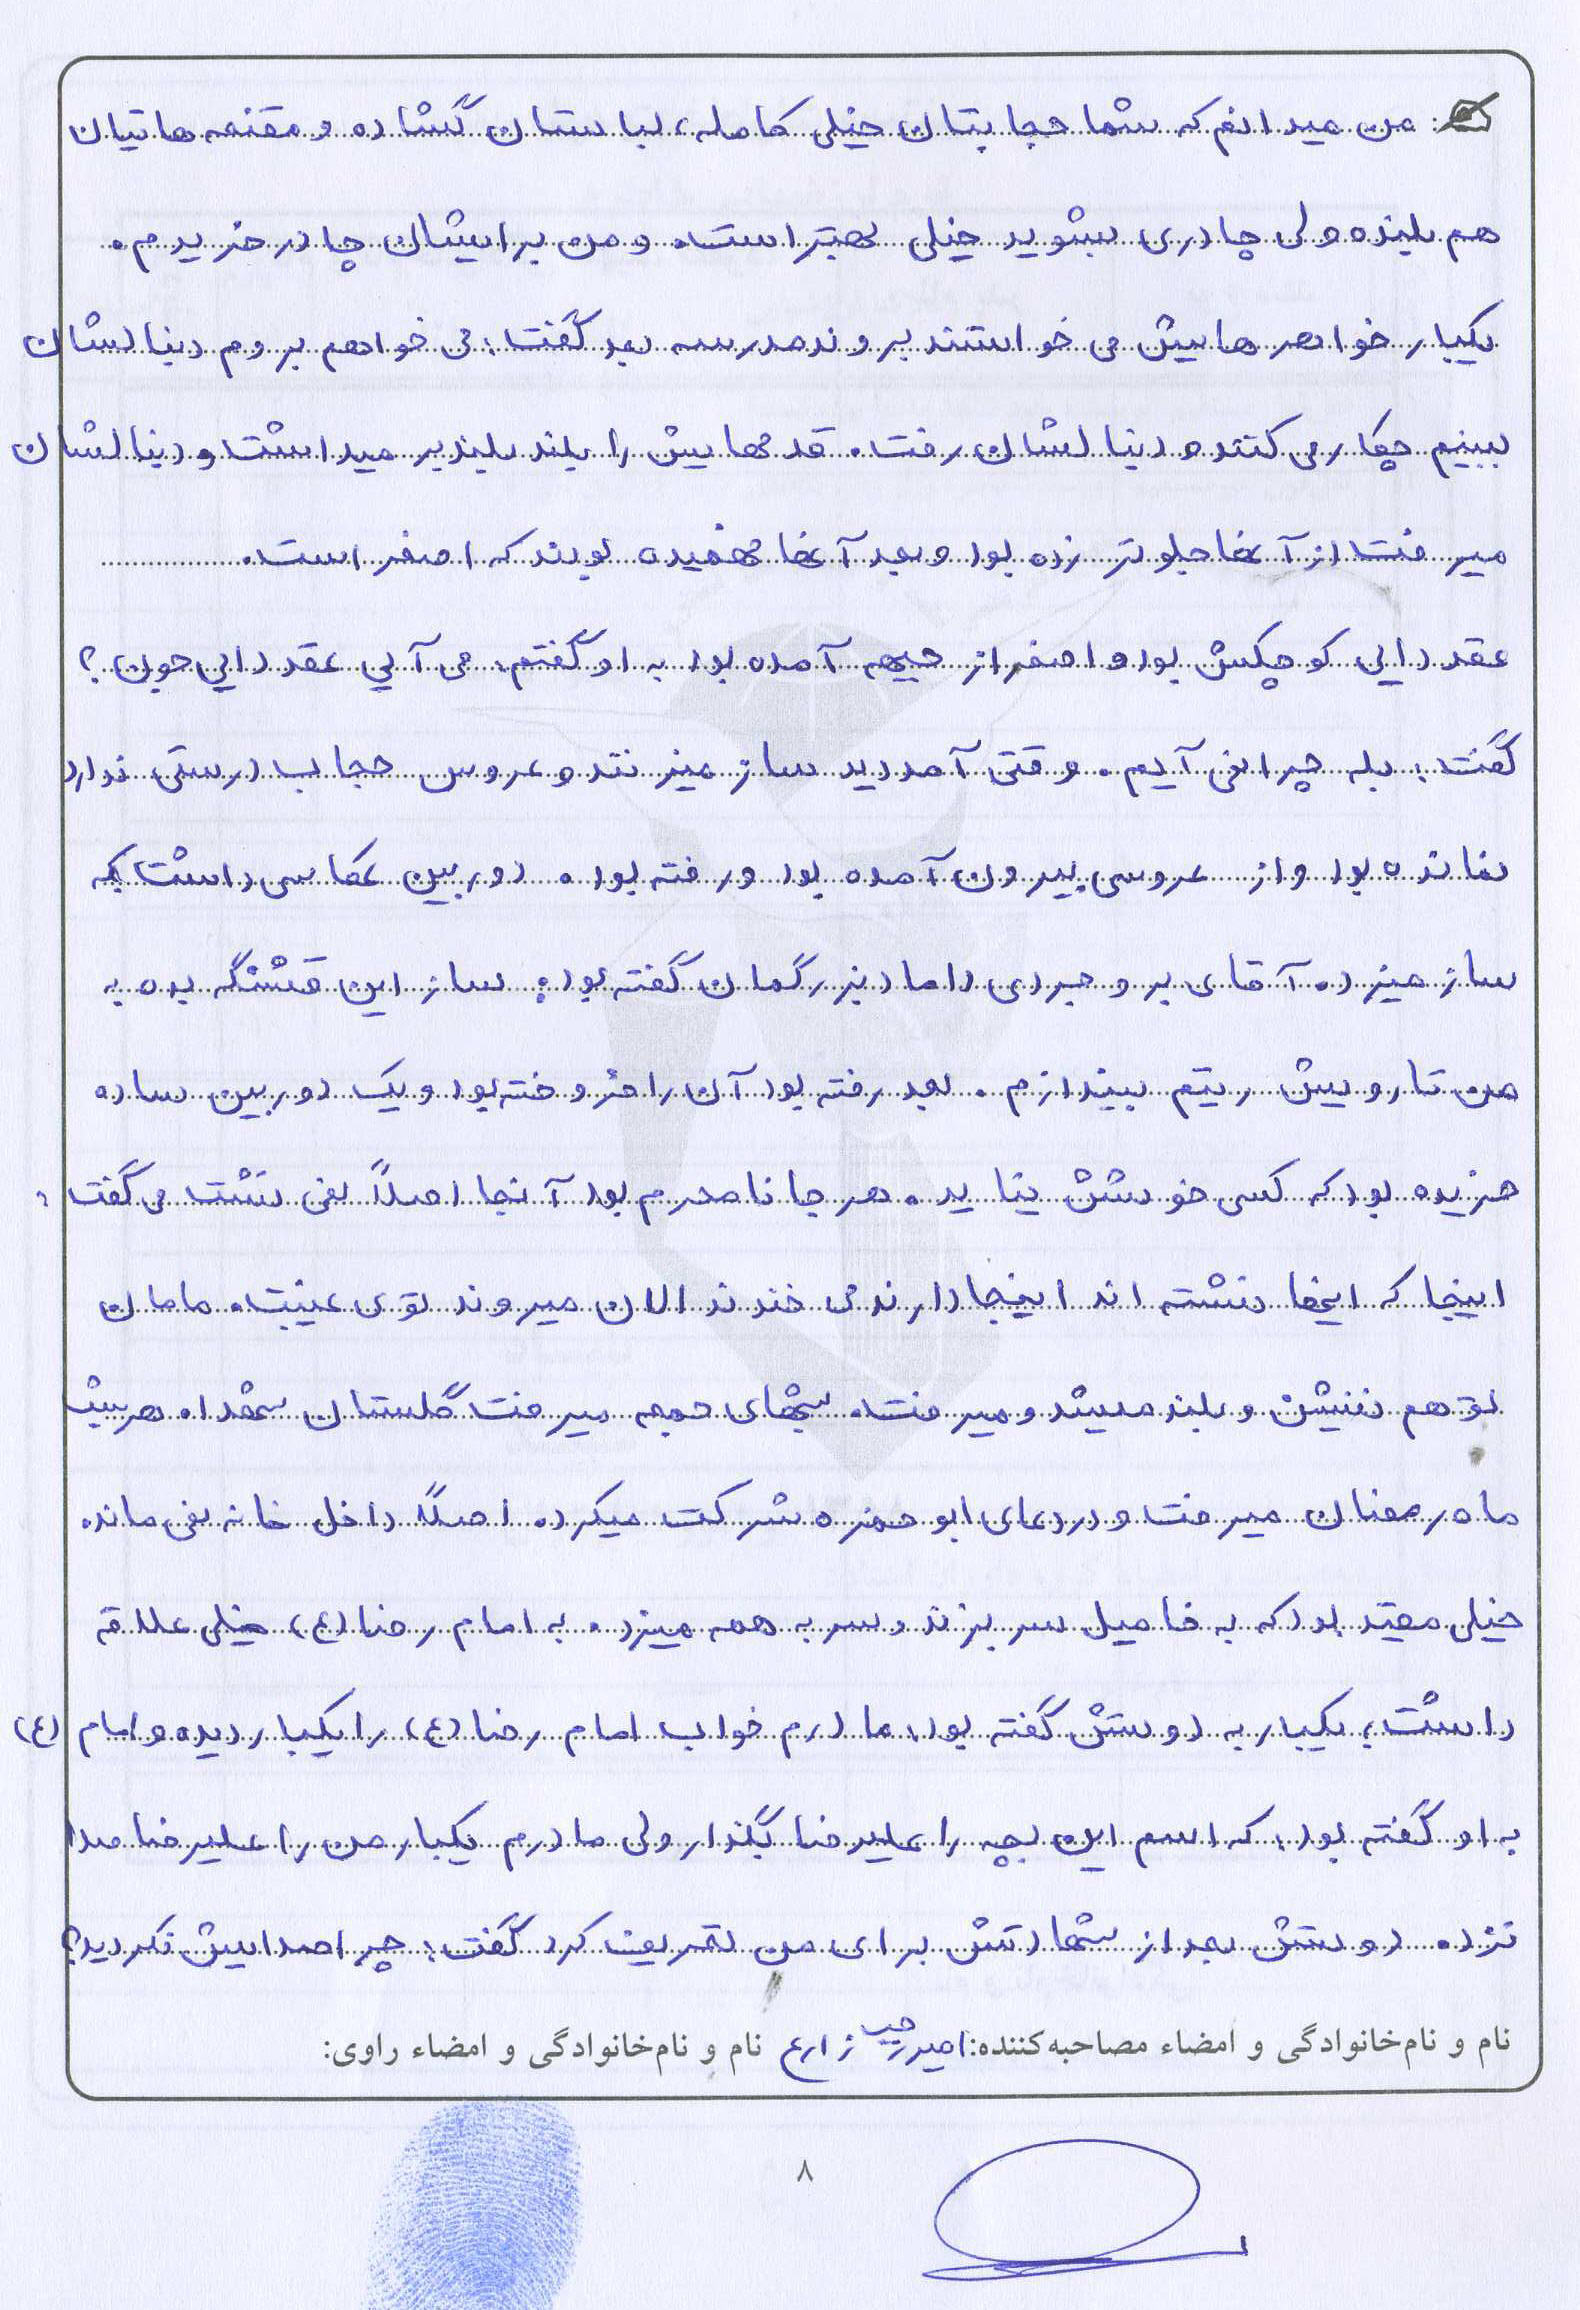 من میدانم که شما حجابتان خیلی کامله، لباستان گشاده و مقنعه هاتیان
هم بلنده ولی چادری بشوید خیلی بهتر است. و من برایشان چادر خریدم.
یکبار خواهرهایش می خواستند بروند مدرسه بعد گفت: می خواهم بروم دنبالشان
ببینم چکار می کنند و دنبالشان رفت. قدمهایش را بلند بلند بر میداشت و دنبالشان
میرفت از آنها جلوتر زده بود و بعد آنها فهمیده بودند که اصغر است.
عقد دایی کوچکش بود و اصغر از جبهه آمده بود به او گفتم: می آیی عقد دایی جون؟
گفت: بله چرا نمی آیم. وقتی آمد دید ساز میزنند و عروس حجاب درستی ندارد
نمانده بود و از عروسی بیرون آمده بود و رفته بود. دوربین عکاسی داشت که
ساز میزد. آقای بروجردی داماد بزرگمان گفته بود: ساز این قشنگه بده به
من تا رویش ریتم بیندازم. بعد رفته بود آن را فروخته بود و یک دوربین ساده
خریده بود که کسی خوشش نیاید. هر جا نامحرم بود آنجا اصلاً نمی نشت می گفت:
اینجا که اینها نشسته اند اینجا دارند می خندند الان میروند توی غیبت. مامان
تو هم ننشین و بلند میشد و میرفت. شبهای جمعه میرفت گلستان شهدا. هر شب
ماه رمضان میرفت و در دعای ابوحمزه شرکت میکرد. اصلاً داخل خانه نمی ماند.
خیلی مقید بود که به فامیل سر بزند و سر به همه میزد. به امام رضا (ع) خیلی علاقه
داشت؛ یکبار به دوستش گفته بود: مادرم خواب امام رضا (ع) را یکبار دیده و امام (ع)
به او گفته بود: که اسم این بچه را علیرضا بگذار ولی مادرم یکبار من را علیرضا صدا
نزد. دوستش بعد از شهادتش برای من تعریف کرد گفت: چرا صدایش نکردید؟
نام و نام‌خانوادگی و امضاء مصاحبه‌کننده: امیر رجب زارع نام و نام‌خانوادگی و امضاء راوی:
۸